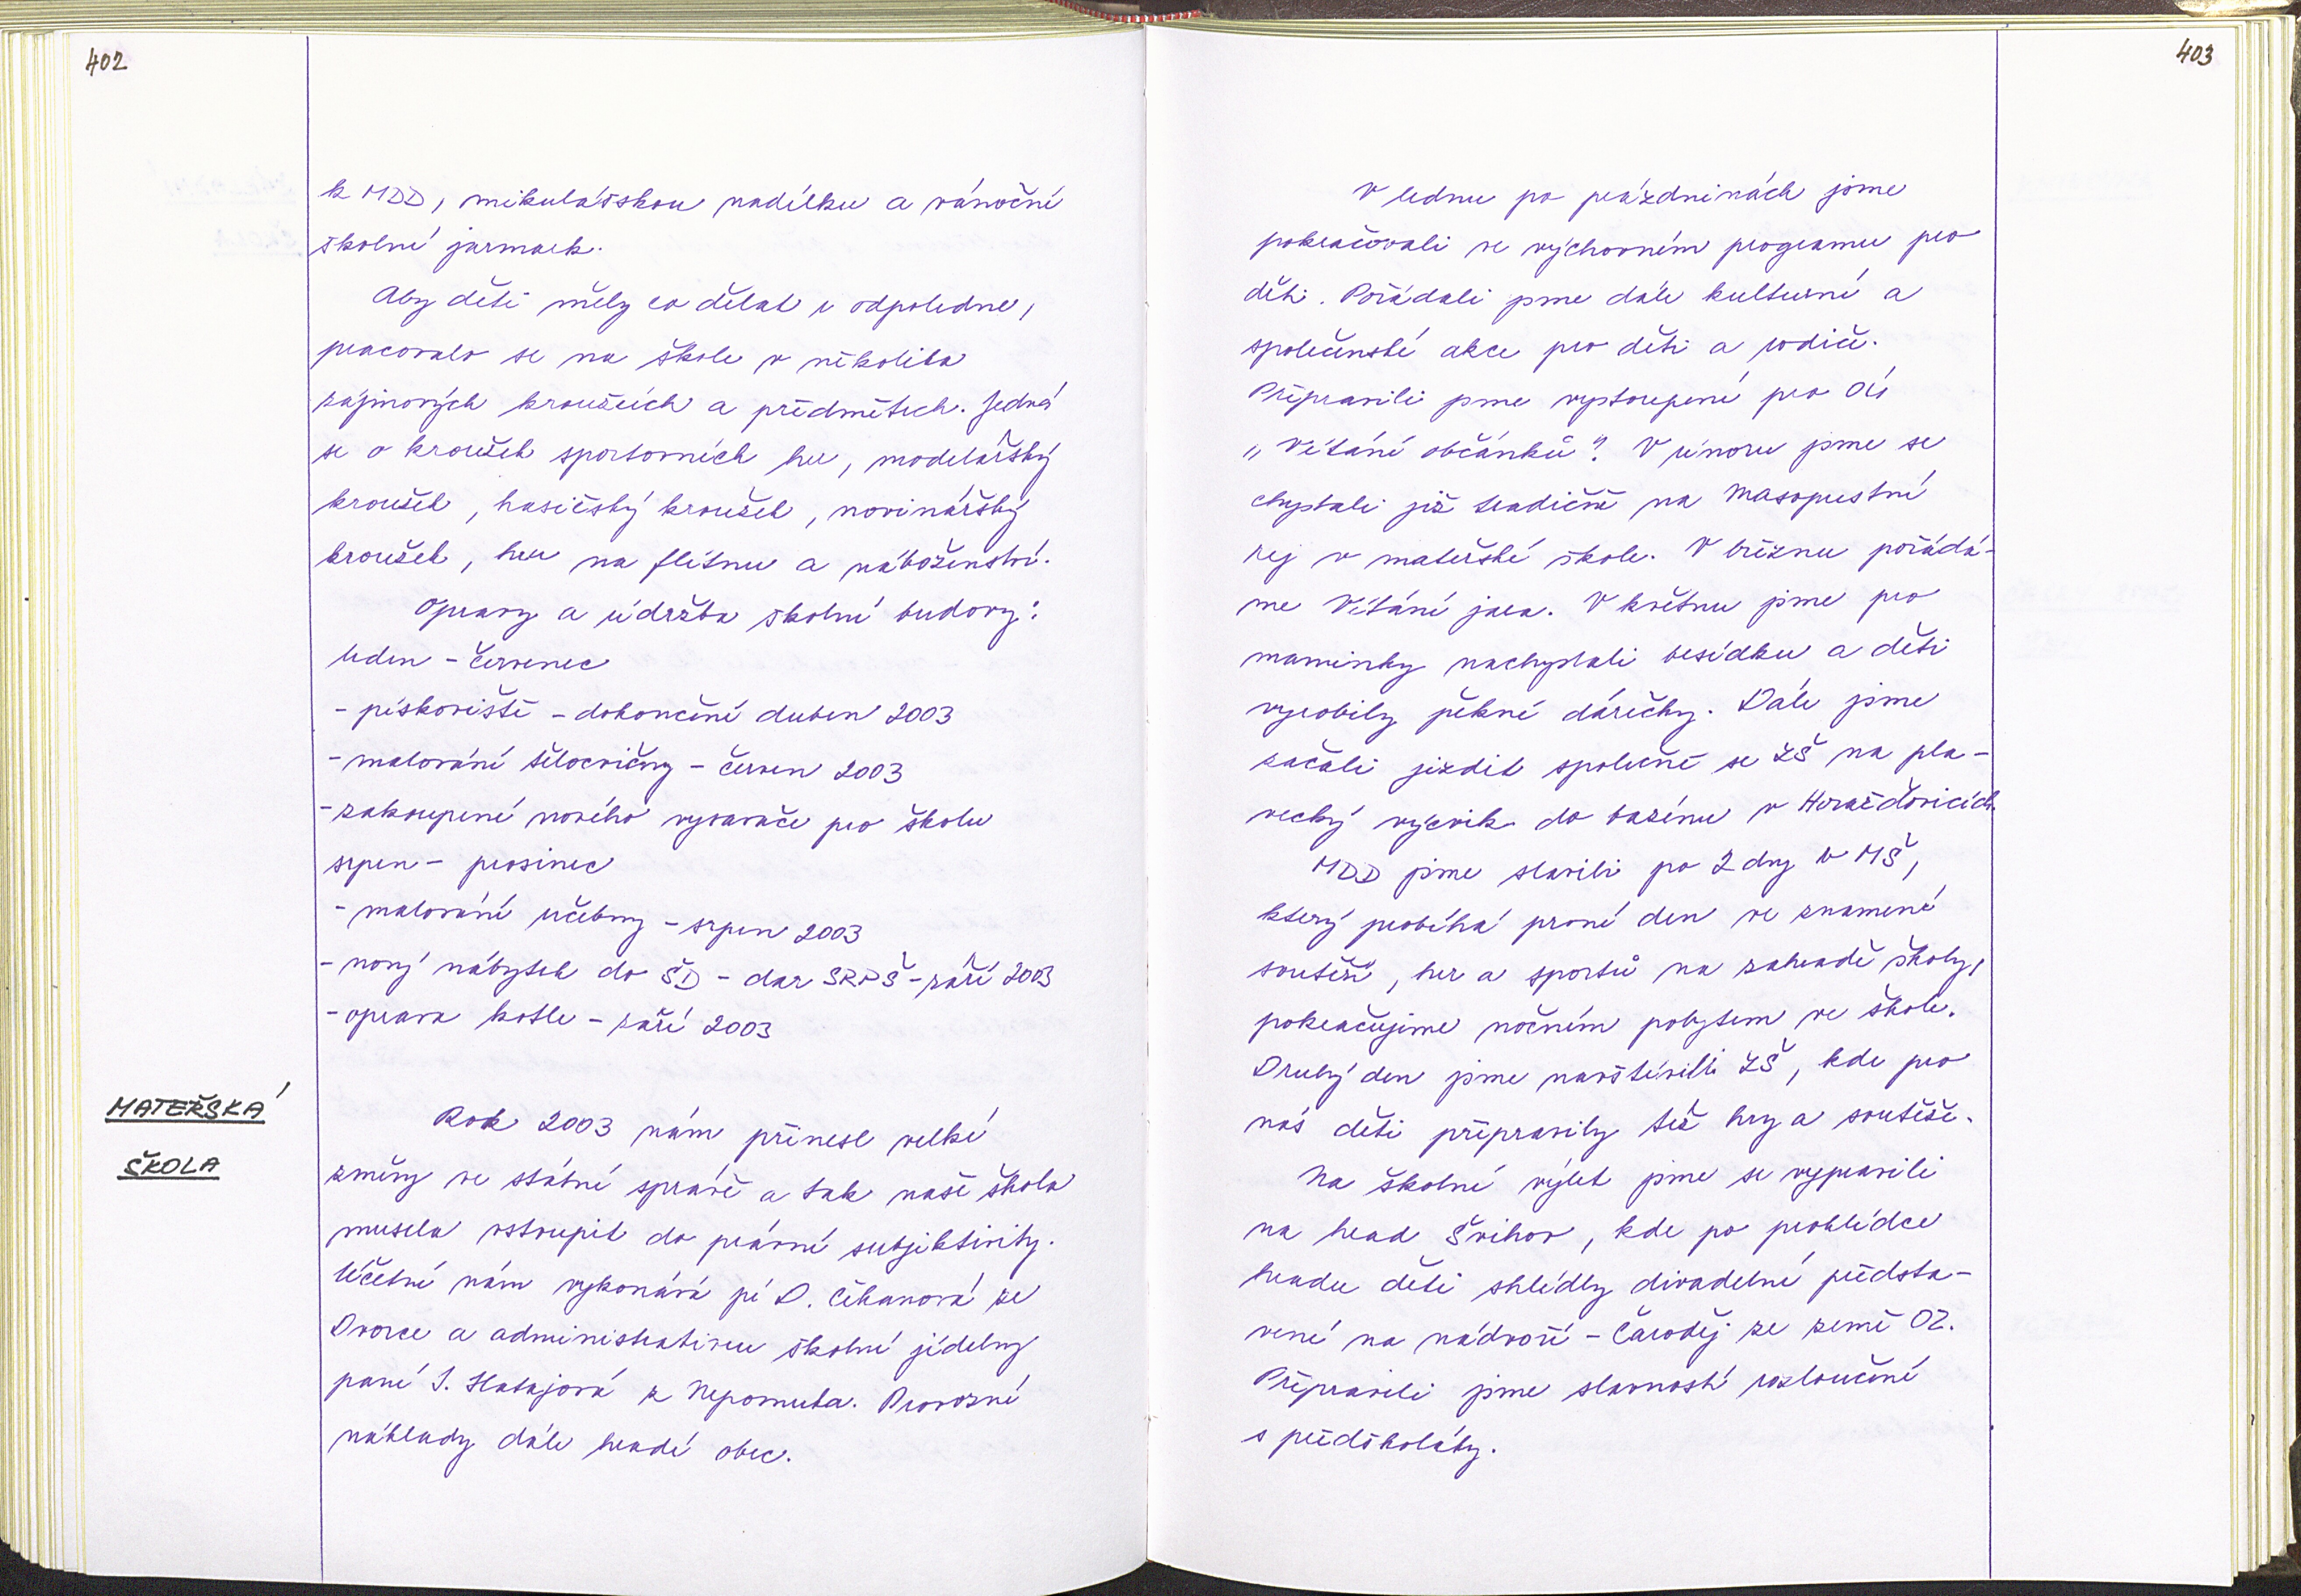 402
k MDD, mikulášskou nadílku a vánoční
školní jarmark.
Aby děti měly co dělat i odpoledne,
pracovalo se na škole v několika
zájmových kroužcích a předmětech. Jedná
se o kroužek sportovních her, modelářský
kroužek, hasičský kroužek, novinářský
kroužek, hru na flétnu a náboženství.
Opravy a údržba školní budovy:
leden - červenec
- pískoviště - dokončení duben 2003
- malování tělocvičny - červen 2003
- zakoupení nového vysavače pro školu
srpen - prosinec
- malování učebny - srpen 2003
- nový nábytek do ŠD - dar SRPŠ - září 2003
- oprava kotle - září 2003
MATEŘSKÁ
ŠKOLA
Rok 2003 nám přinesl velké
změny ve státní správě a tak naše škola
musela vstoupit do právní subjektivity.
Účetní nám vykonává pí D. Čekanová ze
Dvorce a administrativu školní jídelny
paní J. Hatajová z Nepomuka. Provozní
náklady dále hradí obec.
403
V lednu po prázdninách jsme
pokračovali ve výchovném programu pro
děti. Pořádali jsme dále kulturní a
společenské akce pro děti a rodiče.
Připravili jsme vystoupení pro OÚ
„Vítání občánků". V únoru jsme se
chystali již tradičně na Masopustní
rej v mateřské škole. V březnu pořádá-
me Vítání jara. V květnu jsme pro
maminky nachystali besídku a děti
vyrobily pěkné dárečky. Dále jsme
začali jezdit společně se ZŠ na pla-
vecký výcvik do bazénu v Horažďovicích.
MDD jsme slavili po 2 dny v MŠ,
který probíhá první den ve znamení
soutěží, her a sportů na zahradě školy,
pokračujeme nočním pobytem ve škole.
Druhý den jsme navštívili ZŠ, kde pro
nás děti připravily též hry a soutěže.
Na školní výlet jsme se vypravili
na hrad Švihov, kde po prohlídce
hradu děti shlédly divadelní předsta-
vení na nádvoří - Čaroděj ze země OZ.
Připravili jsme slavnostní rozloučení
s předškoláky.